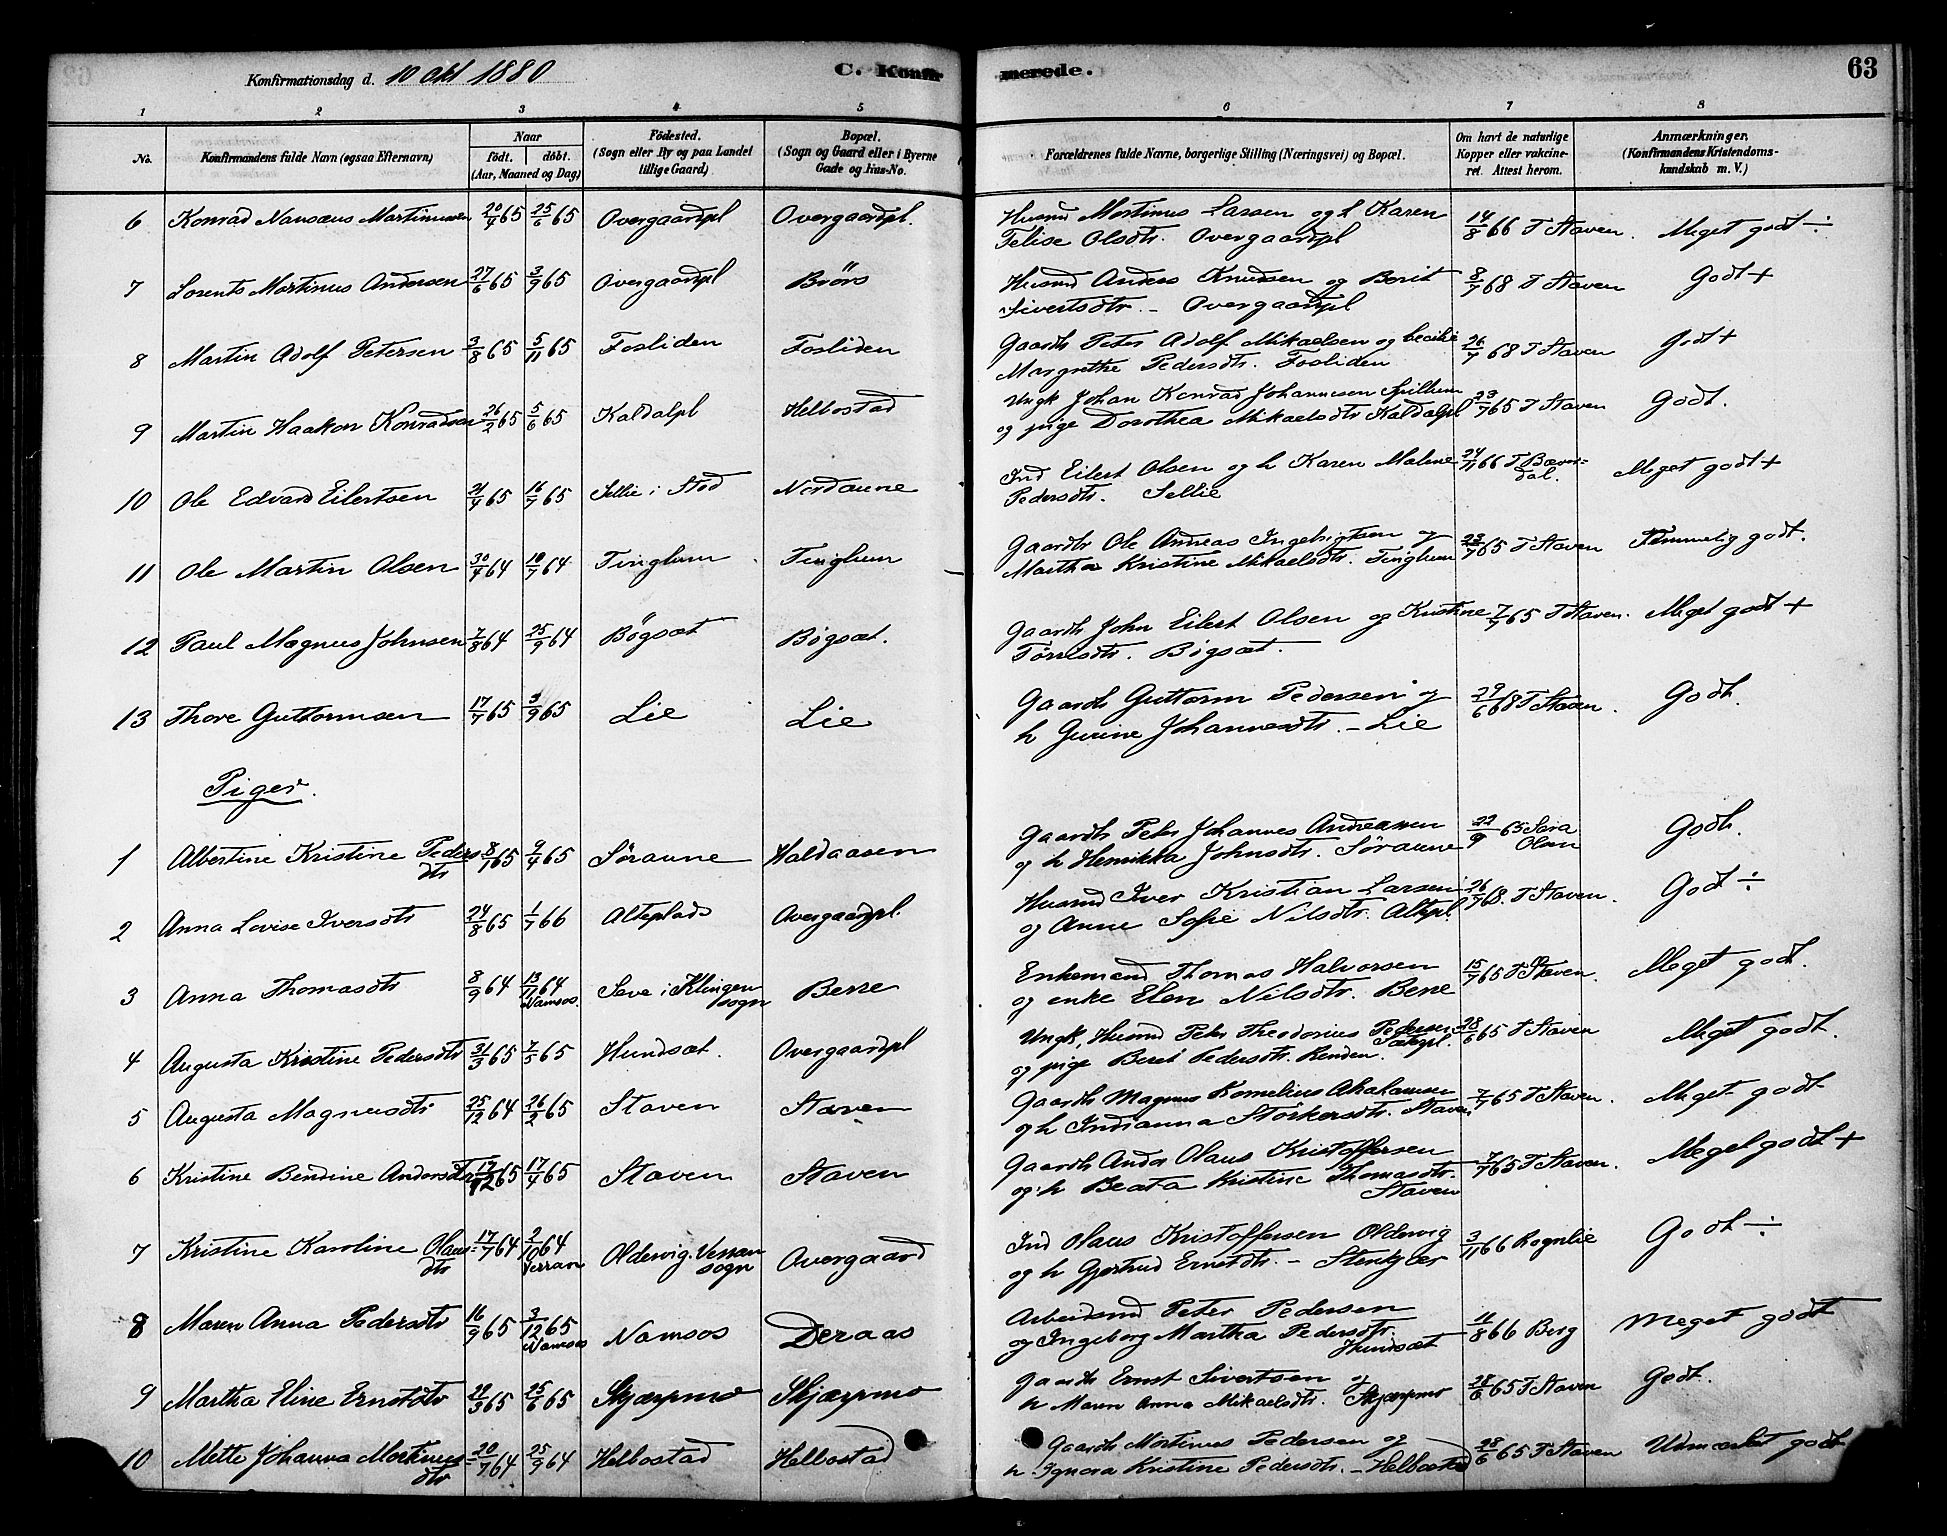 Konfirmationsdag d. 10 Okt 1880
C. Konfirmerede.
63
1 2 3 4 5 6 7 8
No.
Konfirmandens fulde Navn (ogsaa Efternavn)
Naar
født. døbt.
(Aar, Maaned og Dag)
Fødested.
(Sogn eller By og paa Landet
tillige Gaard)
Bopæl.
(Sogn og Gaard eller i Byerne
Gade og Hus-No.
Forældrenes fulde Navne, borgerlige Stilling (Næringsvei) og Bopæl.
Om havt de naturlige
Kopper eller vakcine-
ret. Attest herom.
Anmærkninger.
(Konfirmandens Kristendoms-
kundskab m. V.)
6 Konrad Nansæus Martinussen 20/4 65 25/6 65 Overgaardpl Overgaardpl. Husmd Mortinus Lassen og h Karen 14/8 66 T Staven. Meget godt ÷
Felise Olsdtr. Overgaardpl
7 Lorents Martinus Andersen 27/6 65 3/9 65 Overgaardpl Brörs Husmd Anders Knudsen og Berit 8/7 68 T Staven Godt +
Sivertsdtr. - Overgaardpl
8 Martin Adolf Petersen 3/8 65 5/11 65 Fosliden Fosliden Gaardb Peter Adolf Mikaelsen og Cecilie 26/7 68 T Staven Godt +
Margrethe Pedersdtr. Fosliden
9 Martin Haakon Konradsen 26/2 65 5/6 65 Kaldalpl Helbostad Ungk Johan Konrad Johannesen Spillum 23/7 65 T Staven Godt.
og pige Dorothea Mikaelsdtr Kaldalpl
10 Ole Edvard Eilertsen 21/4 65 16/7 65 Sellie i Stod Nordaune Ind Eilert Olsen og h Karen Malene 24/11 66 T Bæver-
dal. Meget godt +
Pedersdtr. Sellie
11 Ole Martin Olsen 30/4 64 10/7 64 Tinglum Tinglum Gaardb Ole Andreas Ingebrigtsen og 23/7 65 T Staven Temmelig godt.
Martha Kristine Mikaelsdtr. Tinglum
12 Paul Magnus Johnsen 7/8 64 25/9 64 Bögsæt Bögsæt. Gaardb John Eilert Olsen og Kristine 7/7 65 T Staven. Meget godt +
Tørrisdtr. Bögsæt.
13 Thore Guttormsen 17/7 65 3/9 65 Lie Lie Gaardb Guttorm Pedersen og 29/6 68 T Staven. Godt.
h Gurine Johannesdtr. - Lie
Piger.
1 Albertine Kristine Peders
dtr 8/1 65 9/4 65 Söraune Haldaasen Gaardb Peter Johannes Andreassen 22/9 65 Sara
Olsen Godt.
og h Henrikka Johnsdtr. Söraune
2 Anna Lovise Iversdtr 24/8 65 1/7 66 Alteplads Overgaardpl. Husmd Iver Kristian Larsen 26/7 68. T Staven. Godt ÷
og Anne Sofie Nilsdtr. Altepl.
3 Anna Thomasdtr 8/9 64 13/11 64
Namsos. Seve i Klingen
sogn Berre Enkemand Thomas Halvorsen 15/7 65 T Staven. Meget godt.
og enke Elen Nilsdtr. Berre
4 Augusta Kristine Pedersdtr 31/3 65 7/5 65 Hundsæt. Overgaardpl Ungk, Husmd Peter Theodorius Pedersen 28/6 65 T Staven Meget godt.
og pige Berit Pedersdtr. Renden.
5 Augusta Magnusdtr 25/12 64 26/2 65 Staven Staven Gaardb Magnus Kornelius Abrahamsen 7/7 65 T Staven. Meget godt
og h Indianna Storkersdtr. Staven
6 Kristine Bendine Andersdtr 17/2 65 17/4 65 Staven Staven Gaardb Anders Olaus Kristoffersen 7/7 65 T Staven. Meget godt +
og h Beata Kristine Thomasdtr.
Staven
7 Kristine Karoline Olaus-
dtr 17/7 64 2/10 64
Verran Oldervig. Verran
sogn Overgaard Ind Olaus Kristoffersen Oldervig 3/11 66 Rognlie Godt ÷
og h Gjertrud Ernstdtr. - Stenkjær
8 Maren Anna Pedersdtr 16/9 65 3/12 65
Namsos Namsos Deraas Arbeidsmd Peter Pedersen 11/8 66 Berg Meget godt
og Ingeborg Martha Pedersdtr.
Hundsæt
9 Martha Eline Ernstdtr 22/3 65 25/6 65 Skjærpmo Skjærpmo Gaardb Ernst Sivertsen og 28/6 65 T Staven Godt.
h Maren Anna Mikaelsdtr. Skjærpmo
10 Mette Johanna Mortinus
dtr 20/7 64 25/9 64 Helbostad Helbostad Gaardb Mortinus Pedersen og 28/6 65 T Staven Udmærket godt
h Ignora Kristine Pedersdtr. - Helbostad